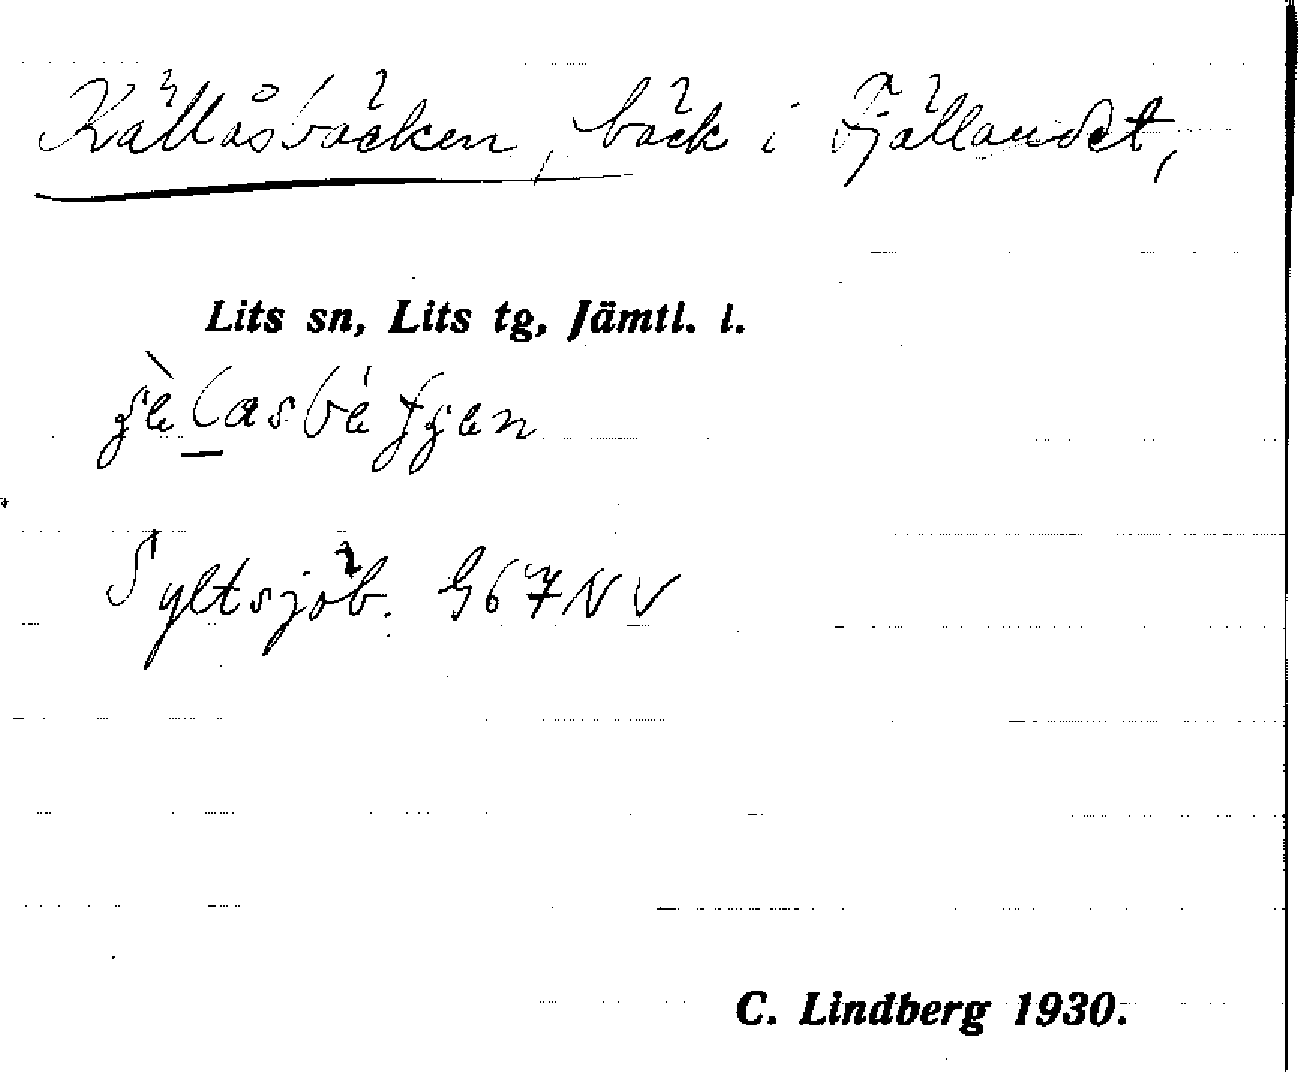 Källåsbäcken, bäck i Fjällandet,
Lits sn, Lits tg, Jämtl. l.
Syltsjöb. G67NV
C. Lindberg 1930.